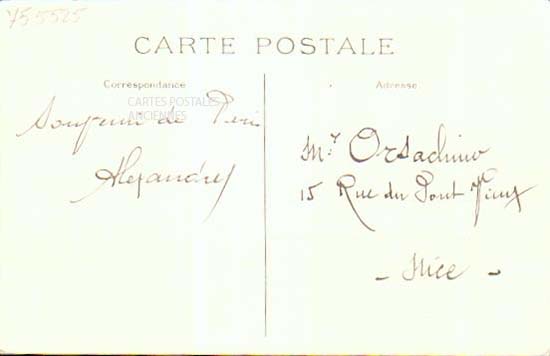 755525
CARTE POSTALE
Correspondance
Adresse
CARTES POSTALES
ANCIENNES
Souvenir de Paris
Alexandre
Mr Orsachino
15 Rue du Pont Vieux
- Nice -